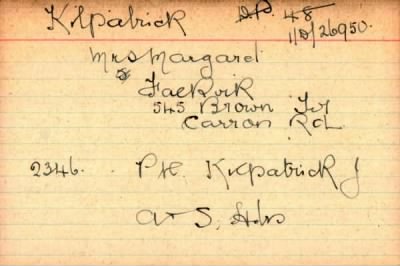 Kilpatrick D.P. 48
11/D/26950.
Mrs Margard
Falkirk
545 Brown Ter
Carron Rd
2346. Pte. Kilpatrick J
A & S. Hdrs